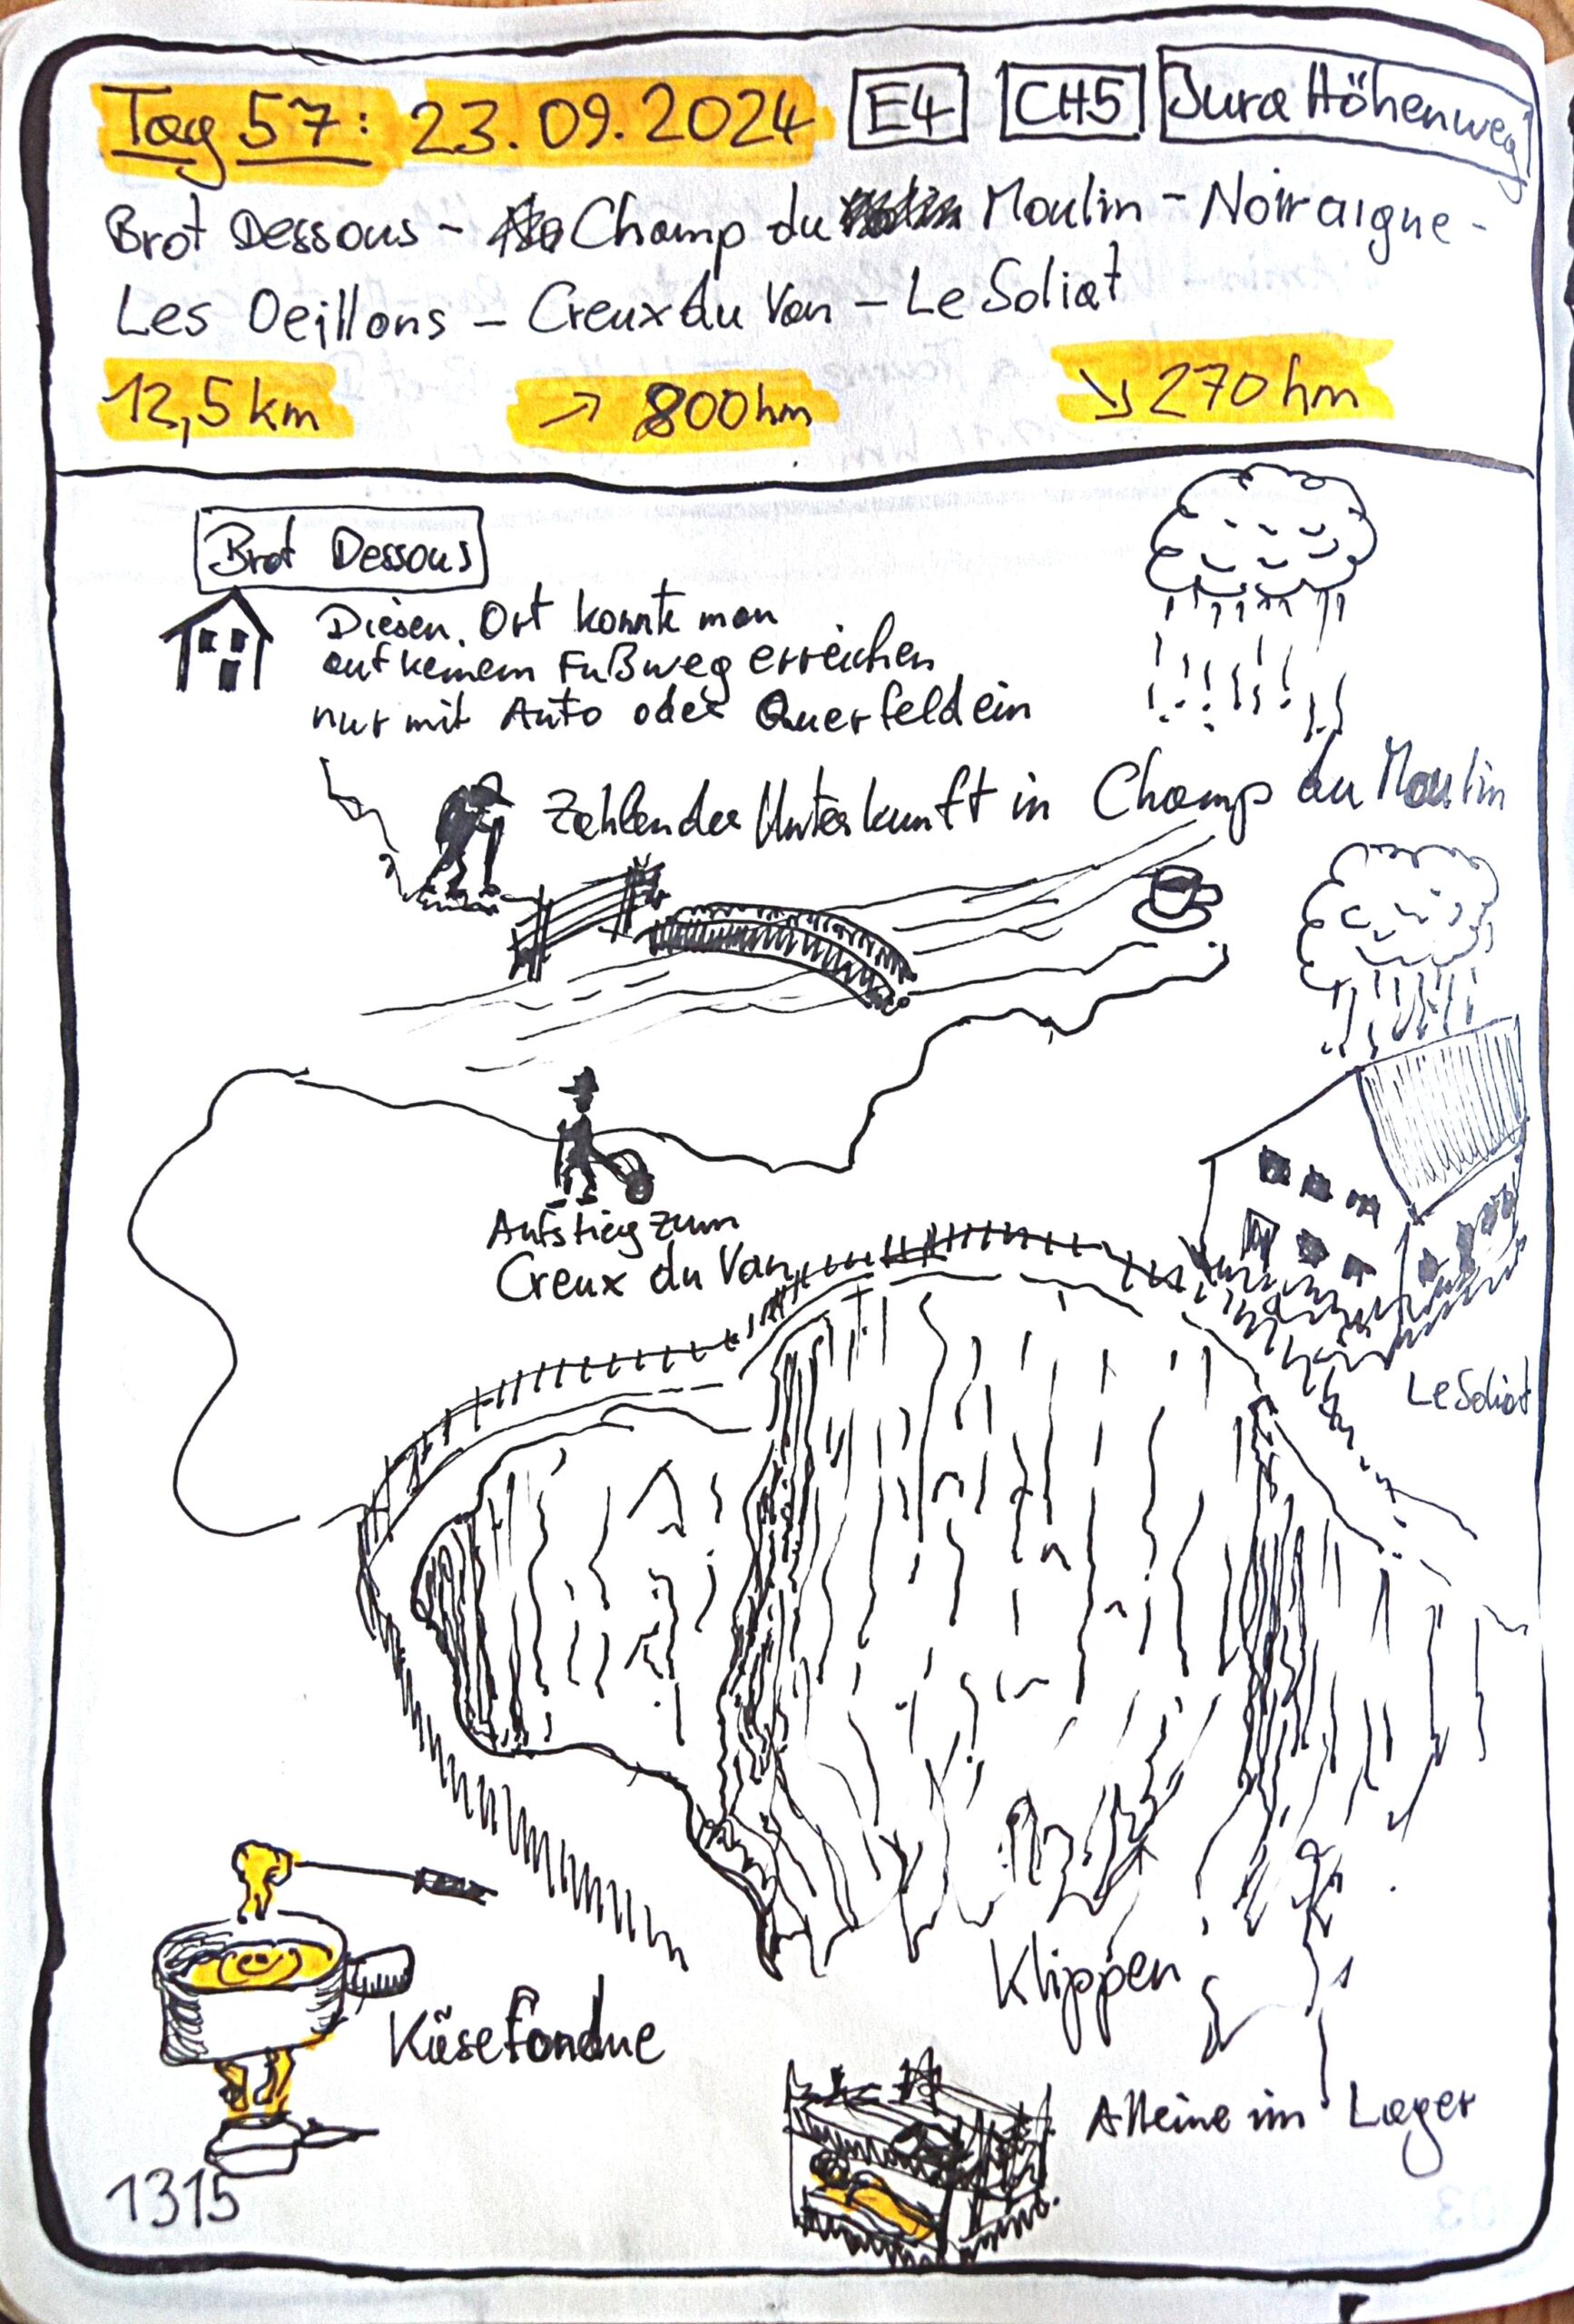 Tag 57: 23.09.2024 E4 CH5 Jura Höhenweg
Brot Dessous - Champ du Moulin - Noiraigue -
Les Oeillons - Creux du Van - Le Soliat
12,5 km ↗ 800 hm ↘ 270 hm
Brot Dessous
Diesen Ort konnte man
auf keinem Fußweg erreichen
nur mit Auto oder Querfeldein
Zahlen der Unterkunft in Champ du Moulin
Aufstieg zum
Creux du Van
Le Soliat
Klippen
Käsefondue
Alleine im Lager
1315